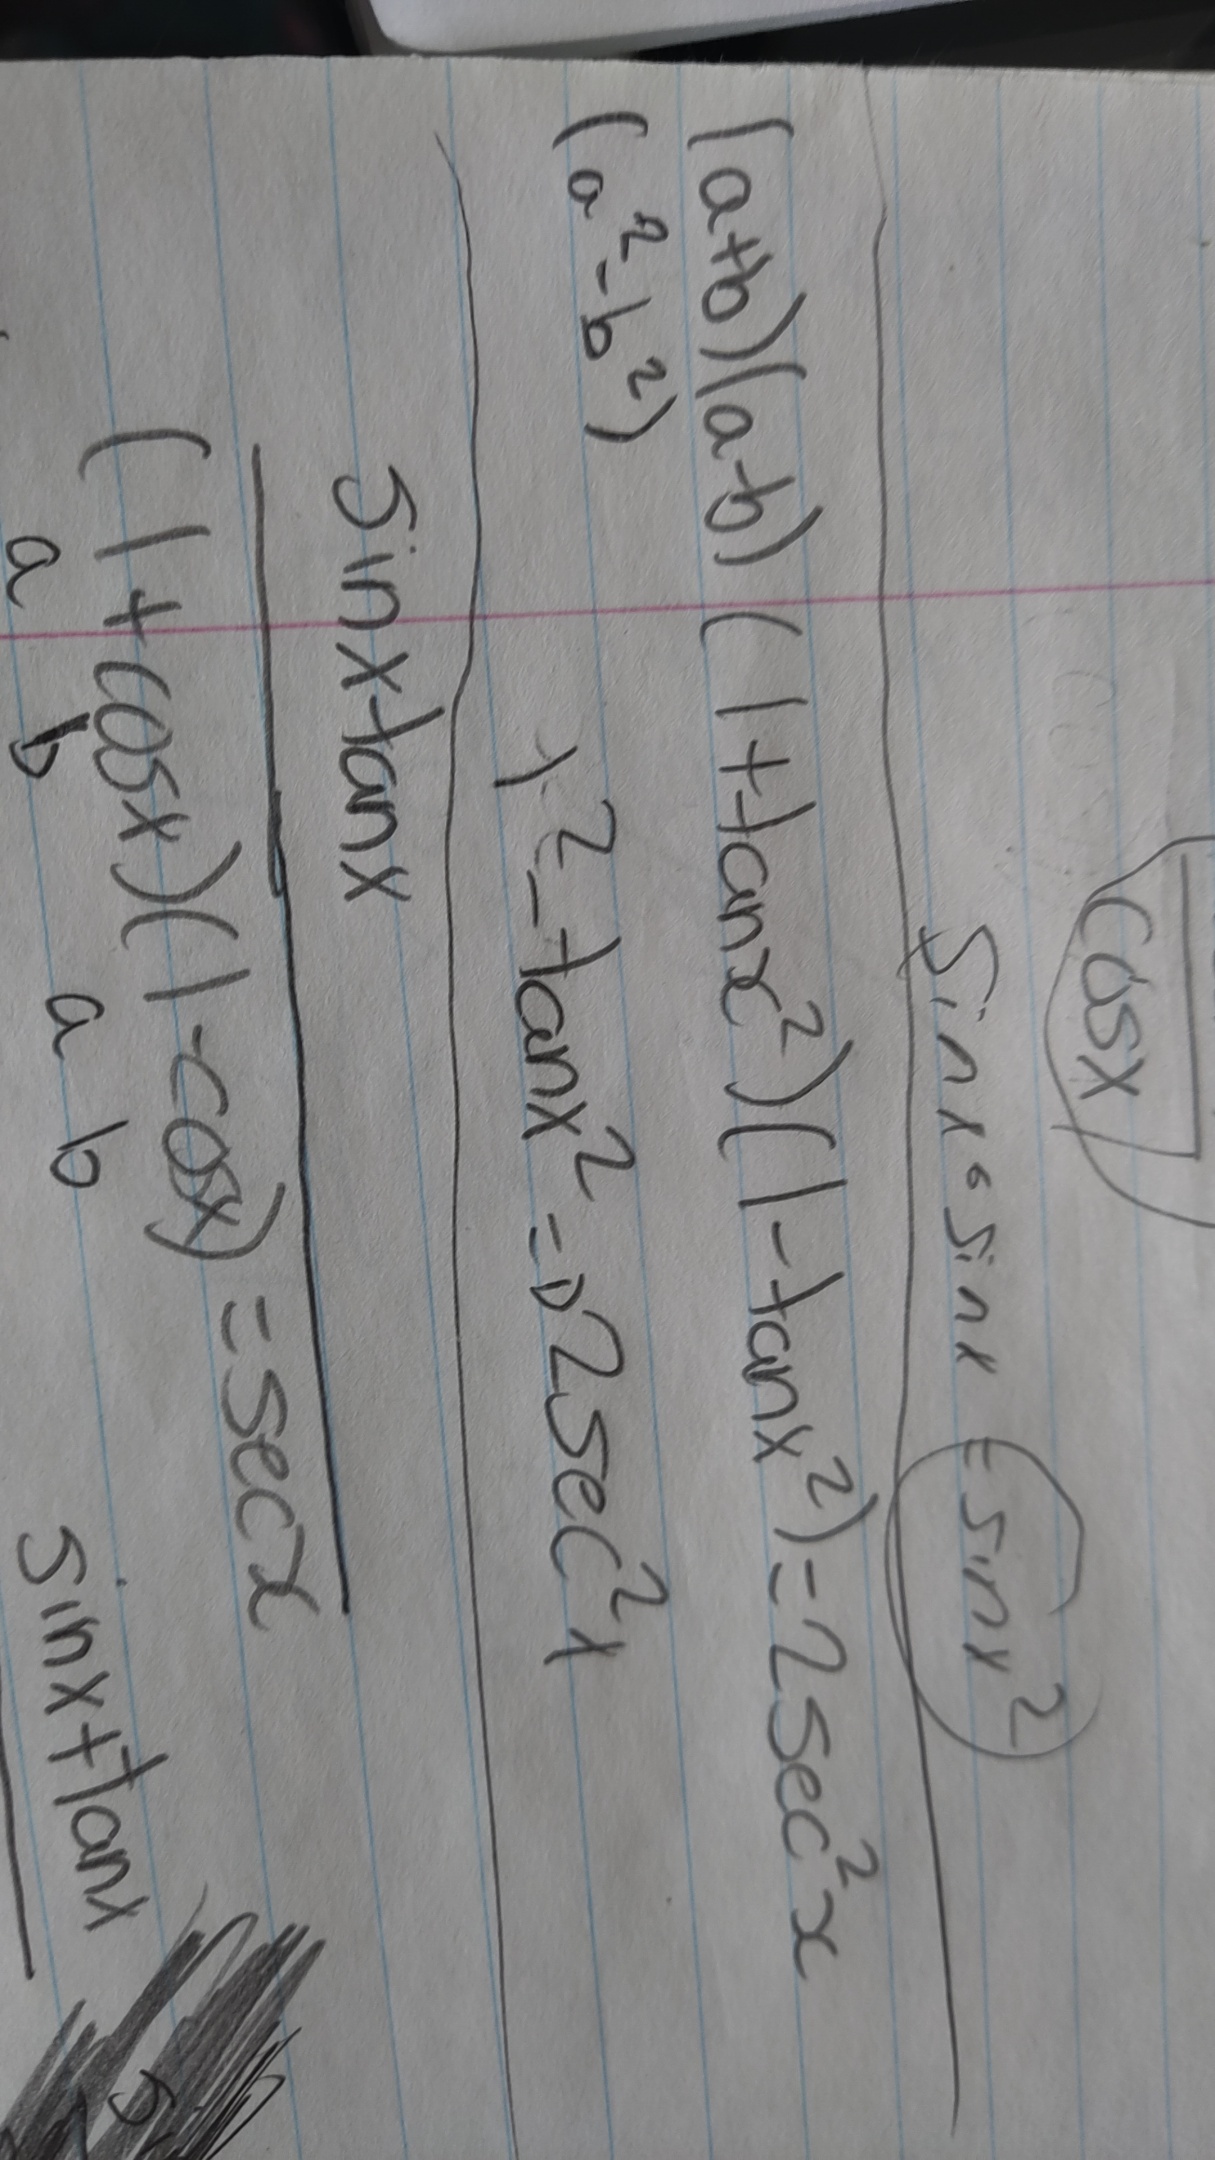 cosx
sinx • sinx = sinx²
(a+b)(a-b) (1+tanx²)(1-tanx²)=2sec²x
(a²-b²)
1²-tanx²=2sec²x
sinxtanx
(1+cosx)(1-cosx) = secx
a b a b
sinx+tanx